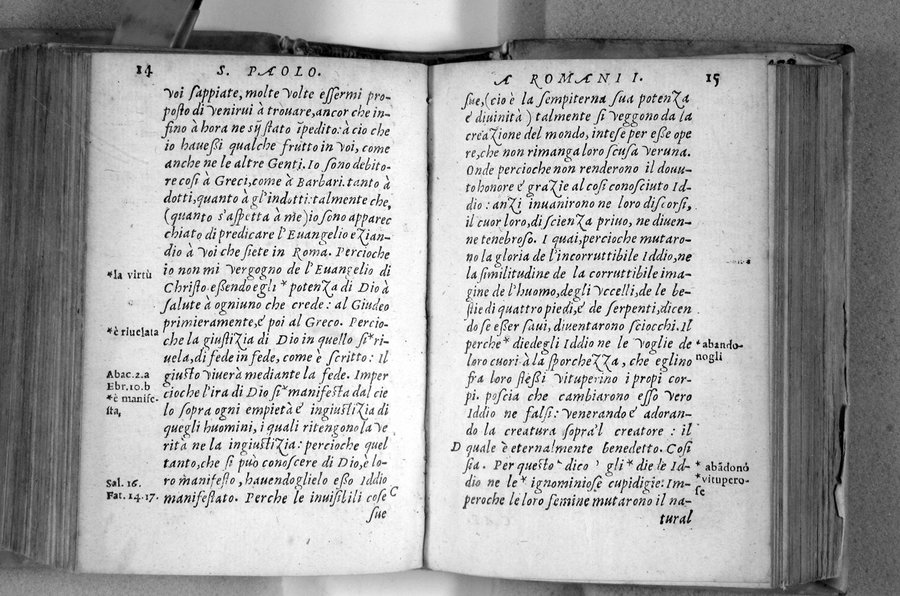 14 S. PAOLO.
voi sappiate, molte volte essermi pro-
posto di venirui à trouare, ancor che in-
fino à hora ne sij stato īpedito: à cio che
io hauessi qualche frutto in voi, come
anche ne le altre Genti. Io sono debito-
re cosi à Greci, come à Barbari. tanto à
dotti, quanto à gl'indotti: talmente che,
(quanto s'aspetta à me) io sono apparec
chiato di predicare l'Euangelio eZian-
dio à voi che siete in Roma. Percioche
io non mi vergogno de l'Euangelio di
*la virtù
Christo essendo egli * potenza di Dio à
salute à ogniuno che crede: al Giudeo
primieramente, e poi al Greco. Percio-
*è riuelata
che la giustizia di Dio in quello si*ri-
uela, di fede in fede, come è scritto: Il
Abac.2.a
giusto viuerà mediante la fede. Imper
Ebr.10.b
cioche l'ira di Dio si*manifesta dal cie
*è manife-
sta,
lo sopra ogni empietà e ingiustizia di
quegli huomini, i quali ritengono la ve
rità ne la ingiustizia: percioche quel
tanto, che si può conoscere di Dio, è lo-
Sal. 16.
ro manifesto, hauendoglielo esso Iddio
Fat. 14.17.
manifestato. Perche le inuisibili cose C
sue
A ROMANI I. 15
sue, (cio è la sempiterna sua potenza
e diuinità) talmente si veggono da la
creazione del mondo, intese per esse ope
re, che non rimanga loro scusa veruna.
Onde percioche non renderono il douu-
to honore e grazie al cosi conosciuto Id-
dio: anzi inuanirono ne loro discorsi,
il cuor loro, di scienza priuo, ne diuen-
ne tenebroso. I quai, percioche mutaro-
no la gloria de l'incorruttibile Iddio, ne
la similitudine de la corruttibile ima-
gine de l'huomo, degli vccelli, de le be-
stie di quattro piedi, e de serpenti, dicen
do se esser saui, diuentarono sciocchi. Il
perche* diedegli Iddio ne le voglie de
*abando-
nogli
loro cuori à la sporchezza, che eglino
fra loro stessi vituperino i propi cor-
pi. poscia che cambiarono esso vero
Iddio ne falsi: venerando e adoran-
do la creatura sopra'l creatore: il
D quale è eternalmente benedetto. Cosi
sia. Per questo dico, gli* die le Id-
* abādonò
dio ne le* ignominiose cupidigie: Im-
* vitupero-
se
peroche le loro femine mutarono il na-
tural